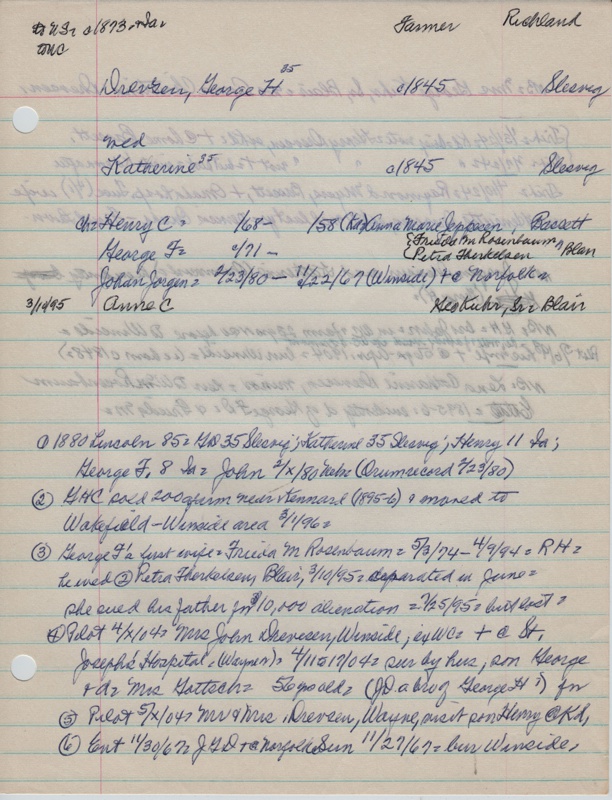 to U.S. c1873 + Ia =
to WC
Farmer Richland
Drevsen, George H 35 c1845 Slesvig
wed
Katherine 35 c1845 Slesvig
ch = Henry C = 1/68 - 1/58 (Ka) Anna Marie Jeppesen, Bassett
George F = c/71 - { Frieda M Rosenbaum, Petra Therkelsen } Blair
Johan Jorgen = 2/23/80 - 11/22/67 (Winside) + @ Norfolk =
3/10/95 Anna C Geo Kuhr, Sr = Blair
① 1880 Lincoln 85 = GD 35 Slesvig; Katherine 35 Slesvig; Henry 11 Ia;
George F. 8 Ia = John 2/X/80 Nebr (Drum record 2/23/80)
② GHC sold 200 a farm near Kennard (1895-6) & moved to
Wakefield - Winside area 3/1/96 =
③ George F's first wife = Frieda M Rosenbaum = 5/3/74 - 4/9/94 = RH =
he wed ② Petra Therkelsen, Blair, 3/10/95 = separated in June =
she sued his father for $10,000 alienation = 7/25/95 = but lost =
④ Pilot 4/X/04 = Mrs John Drevsen, Winside, ex WC = + @ St.
Joseph's Hospital (Wayne) = 4/11 = 17/04 = sur by hus, son George
+ d = Mrs Gottsch = 56 yo old = (JD a bro of George H?) for
⑤ Pilot 5/X/04 = Mr & Mrs. Drevsen, Wayne, visit son Henry C Kd,
⑥ Ent 11/30/67 = JGD + @ Norfolk Sun 11/27/67 = bur Winside,